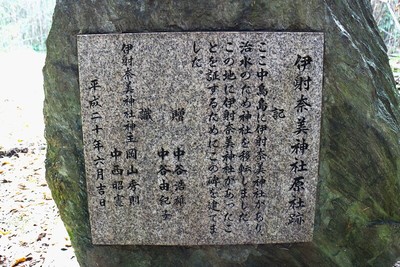 伊射奈美神社原社跡
記
ここ中鳥島に伊射奈美神社があり
治水のため神社を移転しました
この地に伊射奈美神社があったこ
とを証するためにこの碑を建てま
した。
贈 中谷浩雄
中谷由紀子
讖
伊射奈美神社神主 岡山秀則
中西昭憲
平成二十年六月吉日